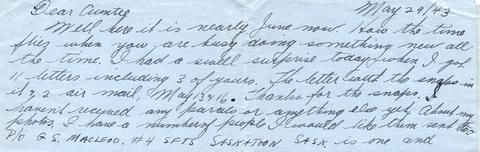 Dear Auntie May 29/43
Well here it is nearly June now. How the time
flies when you are busy doing something new all
the time. I had a swell surprise today when I got
11 letters including 3 of yours. The letter with the snaps in
it & 2 air mail May 13 & 16. Thanks for the snaps. I
haven't recived any parcels or anything else yet. About my
photos. I have a number of people I would like them send to
P/O G.S. MACLEOD. #4 SFTS SASKATOON SASK is one and